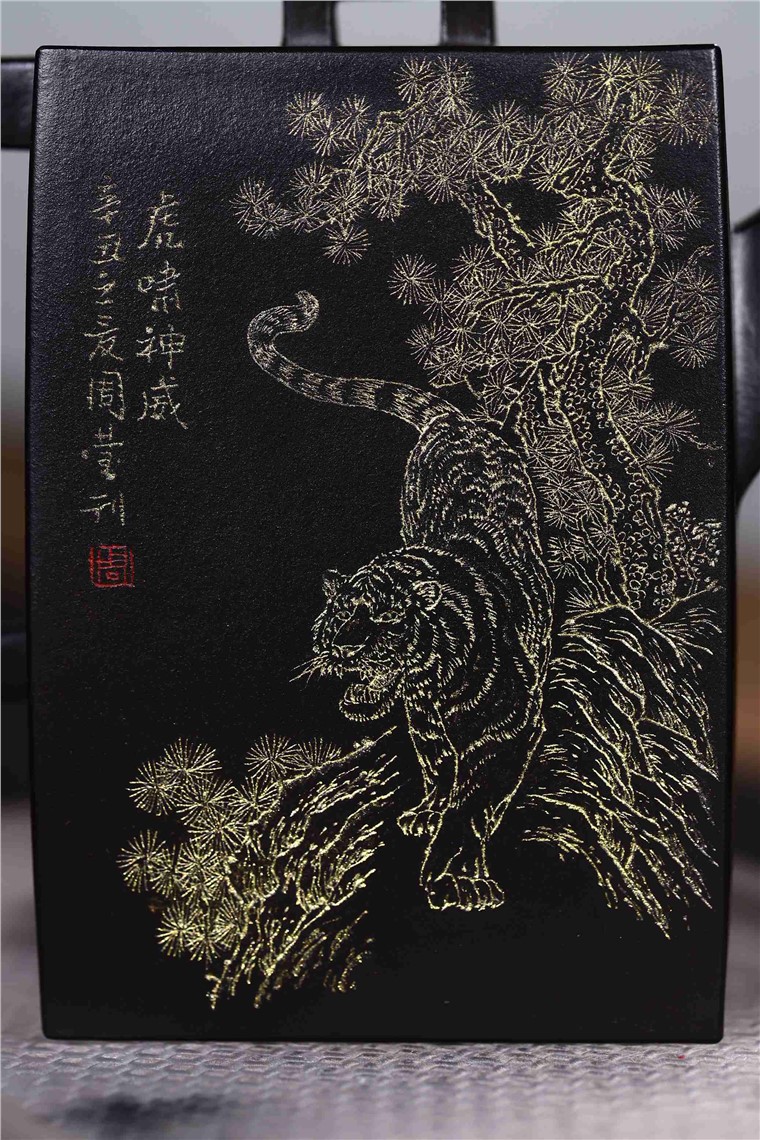 虎啸神威
辛丑之夏周莹刊
周